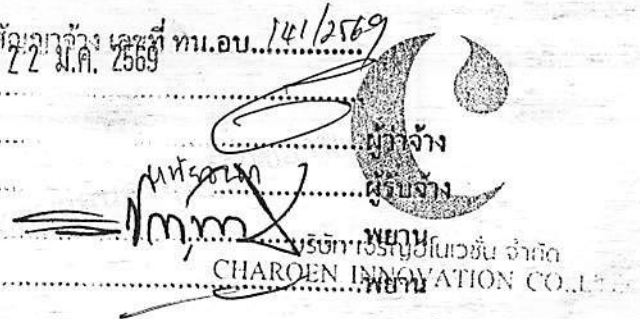 สัญญาจ้าง เลขที่ ทน.อบ. 141/2569
22 ม.ค. 2569
ผู้ว่าจ้าง
ผู้รับจ้าง
พยาน
บริษัท เจริญอินโนเวชั่น จำกัด
CHAROEN INNOVATION CO.,
พยาน